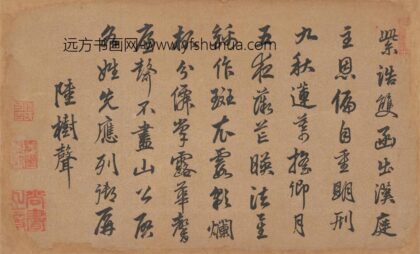 远方书画网www.yfshuhua.com
紫誥雙函出漢庭
主恩偏自重明刑
九秋蓮萼搖卿月
五夜藜芒暎法星
繡作斑衣霞彩爛
杯分僊掌露華馨
屋聲不盡山公啓
名姓先應列御屏
陸樹聲
尚書